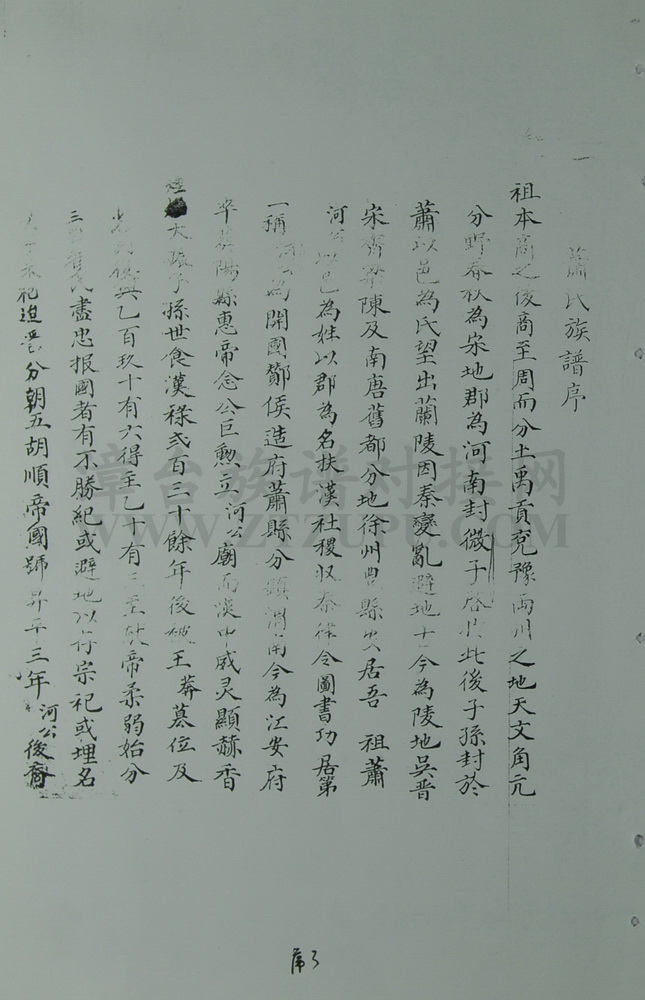 蕭氏族譜序
祖本商之後商至周而分土禹貢兗豫両州之地天文角亢
分野春秋為宋地郡為河南封微子啓於此後子孫封於
蕭以邑為氏望出蘭陵因秦變亂避地于今為陵地吳晋
宋齊梁陳及南唐舊都分地徐州豊縣居吾 祖蕭
河以邑為姓以郡為名扶漢社稷收秦律令圖書功居第
一稱為開國酇侯造府蕭縣分鎮南今為江安府
平陽縣惠帝念公巨勲立河公廟而漢中威灵顯赫香
禋大振子孫世食漢祿弍百三十餘年後被王莽慕位及
復興乙百玖十有六得主乙十有三至帝柔弱始分
三盡忠报國者有不勝紀或避地以存宗祀或埋名
祀迨晋分朝五胡順帝國號昇平三年河公後裔
第3
章台族谱对接网
WWW.ZTZUPU.COM